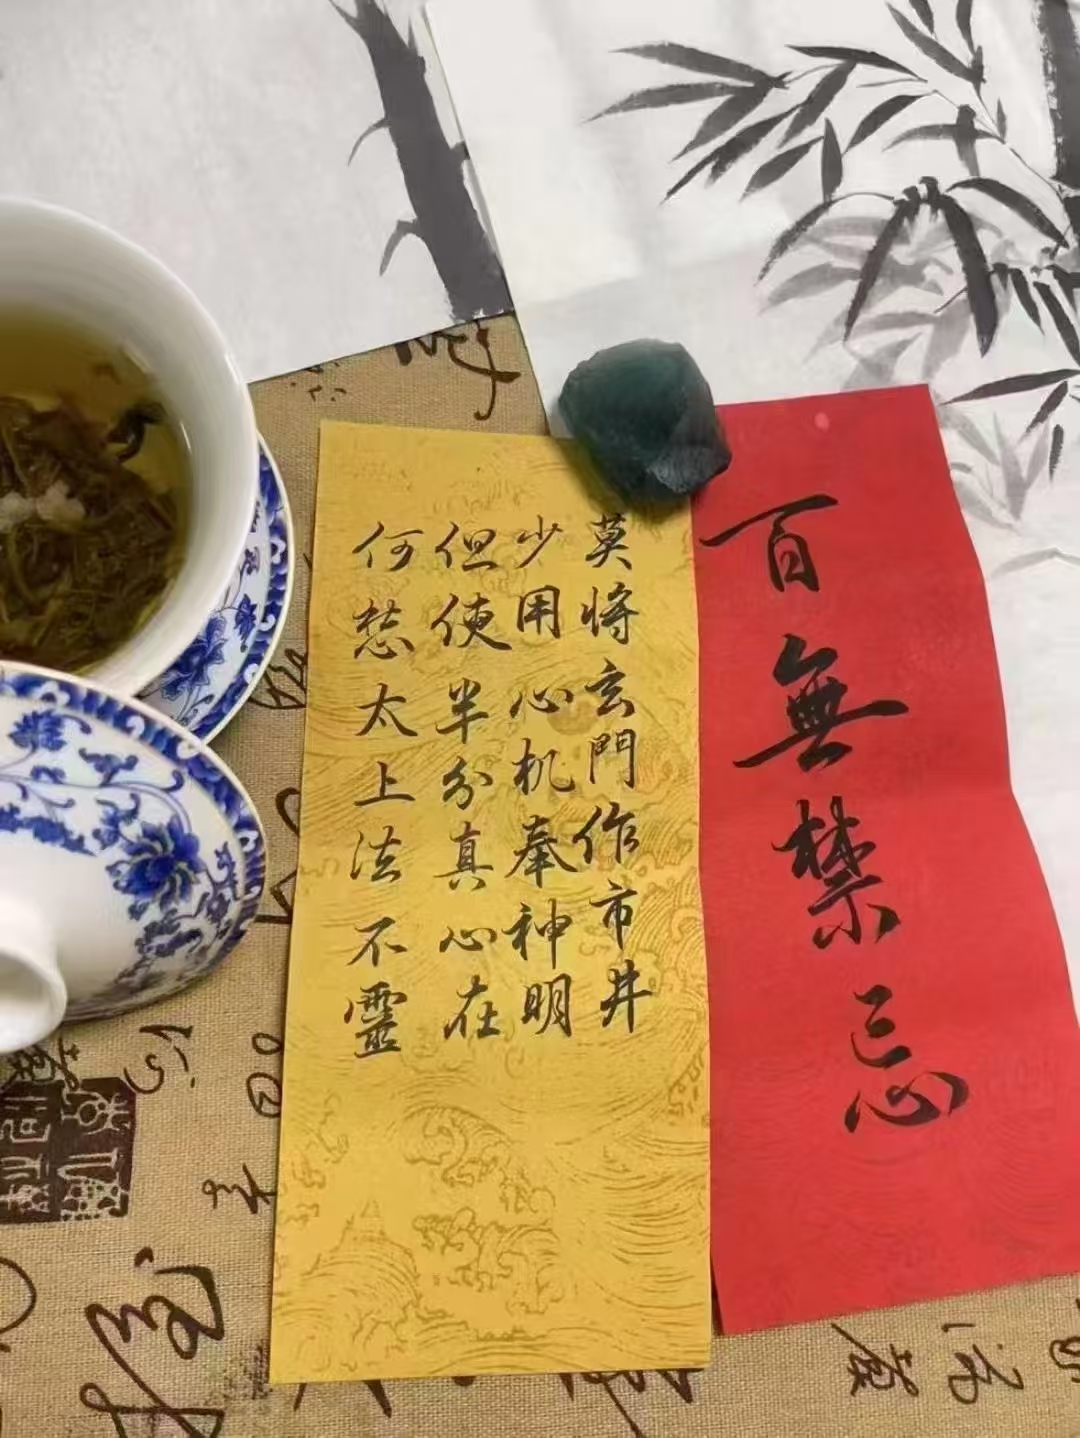 百無禁忌
莫将玄門作市井
少用心机奉神明
但使半分真心在
何愁太上法不靈